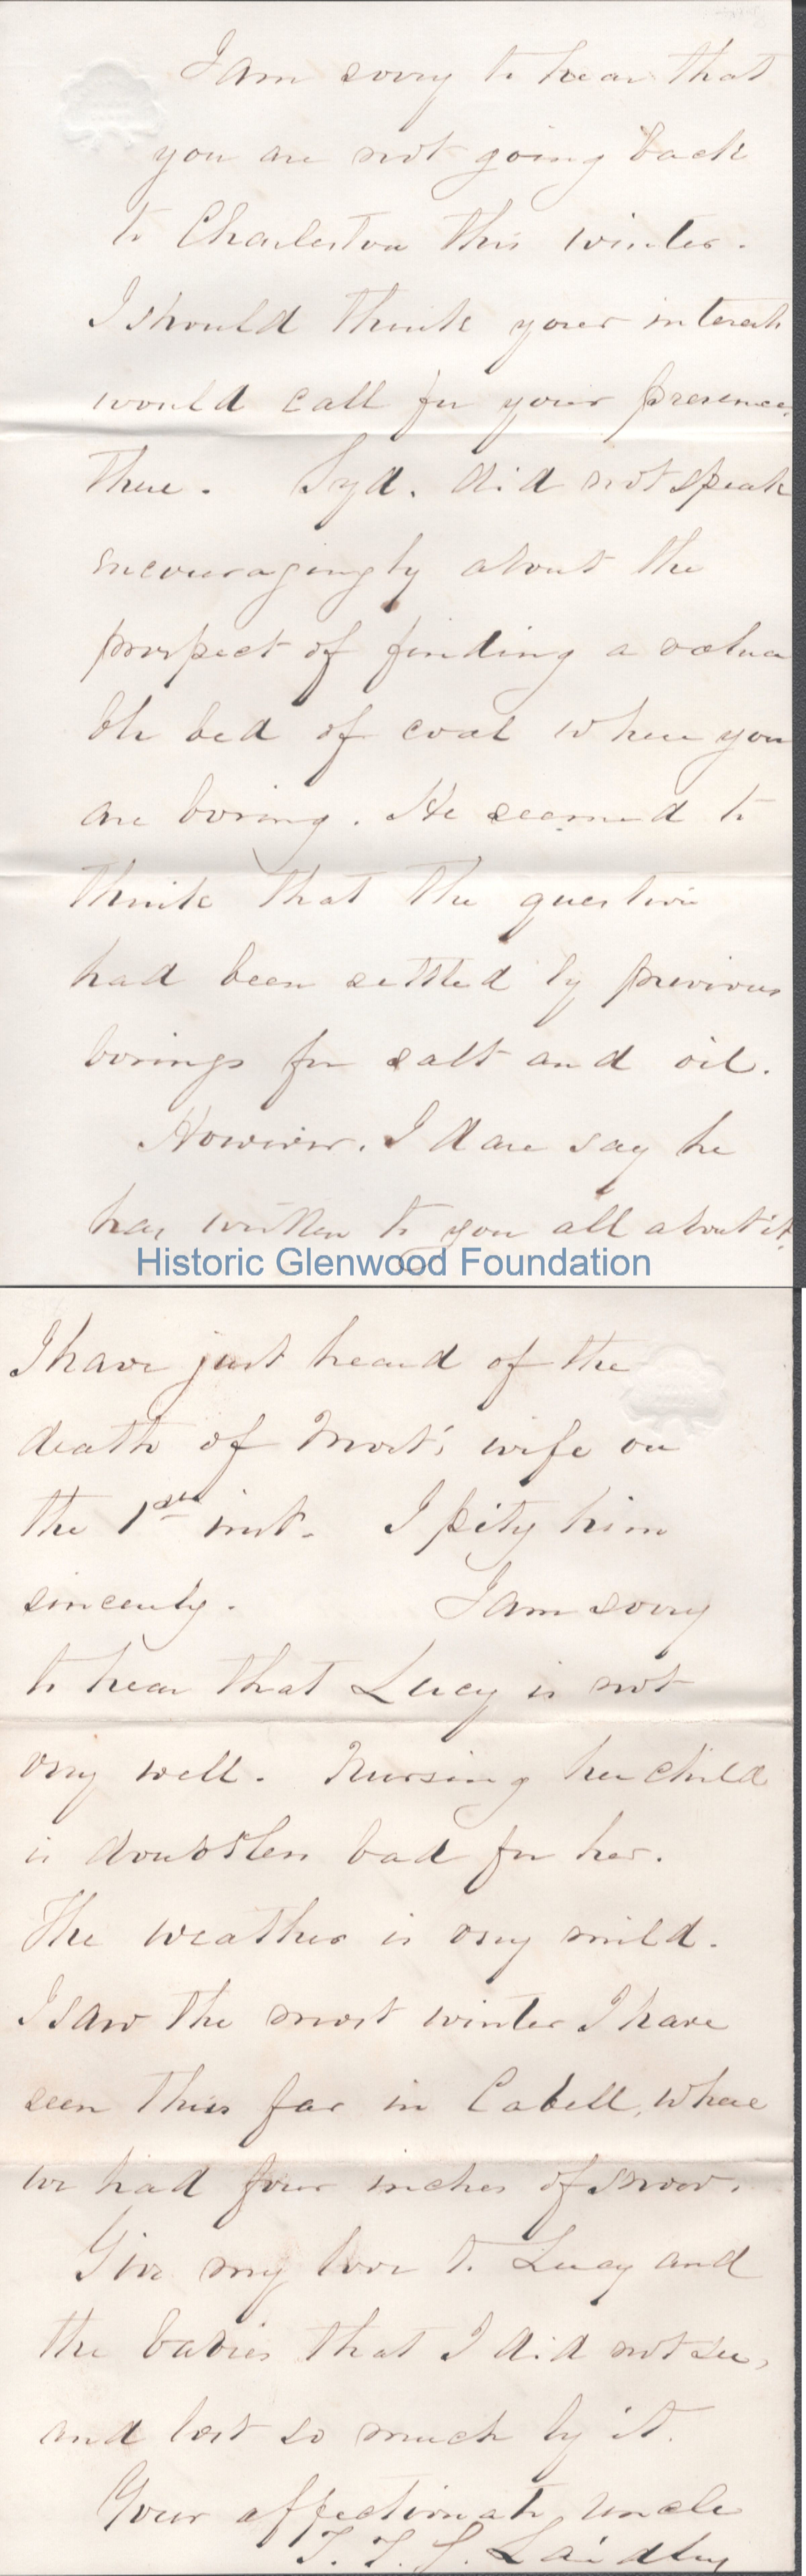 I am sorry to hear that
you are not going back
to Charleston this winter.
I should think your interests
would call for your presence
there. Syd. did not speak
encouragingly about the
prospect of finding a valua
ble bed of coal where you
are boring. He seemed to
think that the question
had been settled by previous
borings for salt and oil.
However, I dare say he
has written to you all about it.
Historic Glenwood Foundation
I have just heard of the
death of Mort's wife on
the 1st inst. I pity him
sincerely. I am sorry
to hear that Lucy is not
very well. Nursing her child
is doubtless bad for her.
The weather is very mild.
I saw the most winter I have
seen thus far in Cabell, where
we had four inches of snow.
Give my love to Lucy and
the babies that I did not see,
and lost so much by it.
Your affectionate uncle
T. T. S. Laidley